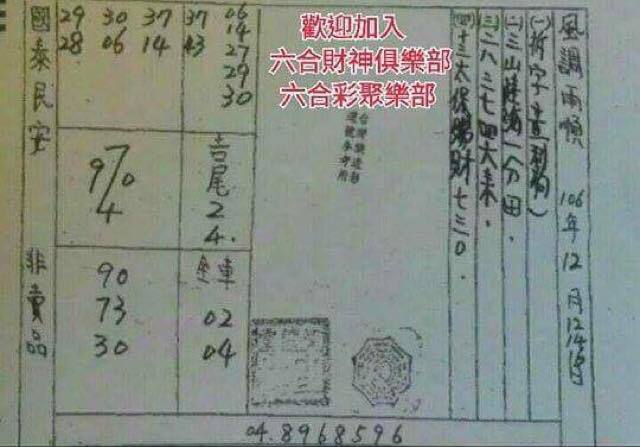 歡迎加入
六合財神俱樂部
六合彩聚樂部
風調雨順 106年12月12 14 16日
(一)拆字
(二)三山 一分田.
(三)二八三七四六來.
(四)十三太保賜財七三0.
國泰民安
非賣品
29 30 37 37 06
28 06 14 43 14
27
29
30
9 7 0
4
吉尾
2
4.
90
73
30
全車
02
04
04.8968596